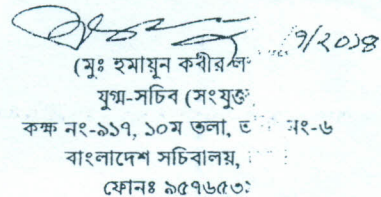 ৭/২০১৪
(মুঃ হুমায়ূন কবীর
যুগ্ম-সচিব (সংযুক্ত
কক্ষ নং-৯১৭, ১০ম তলা, নং-৬
বাংলাদেশ সচিবালয়,
ফোনঃ ৯৫৭৬৫৩